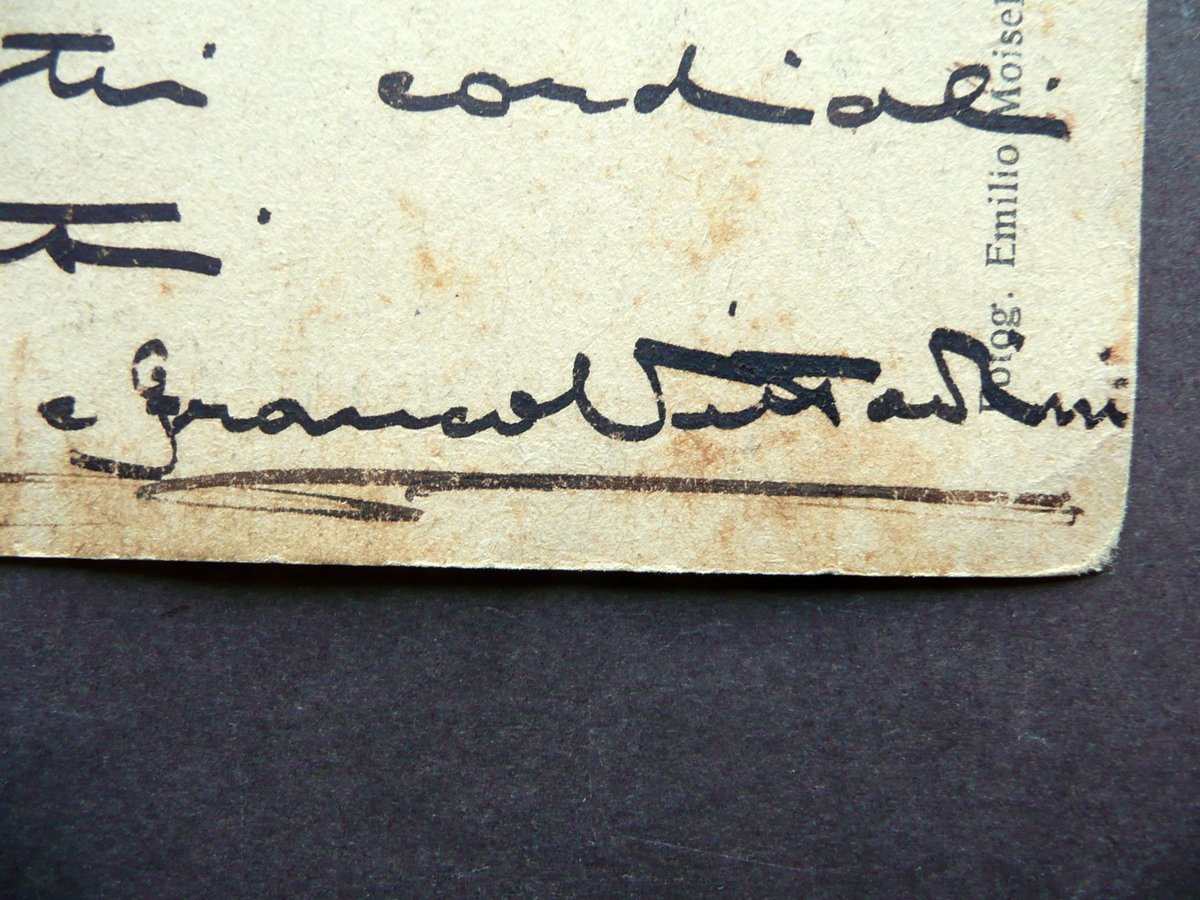 cordiali
Franco Vittadini
Fotogg. Emilio Moisel